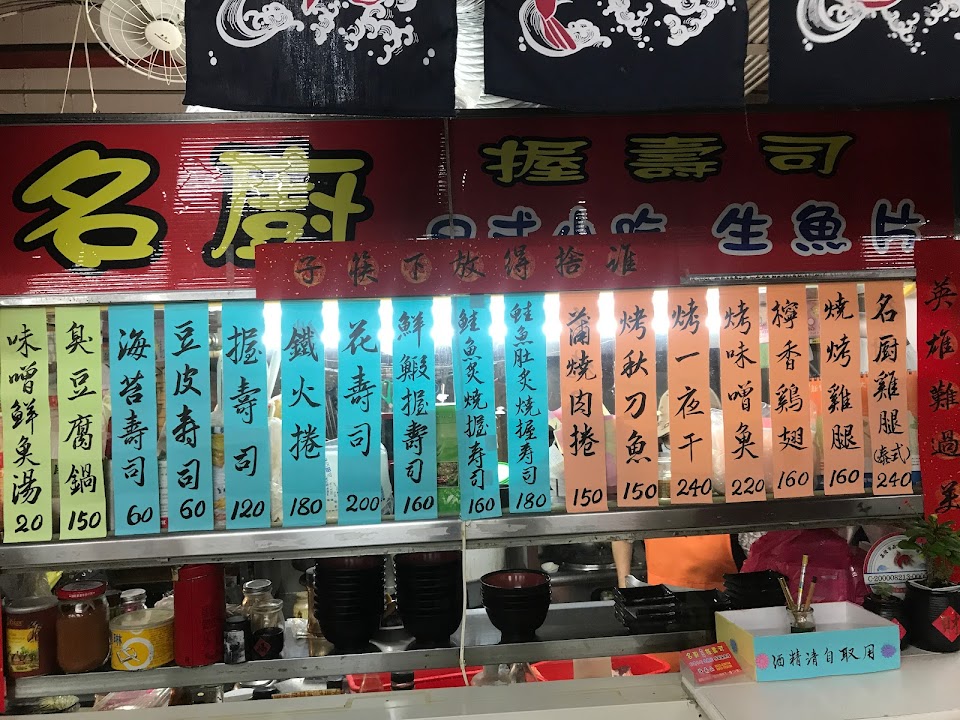 名廚
握壽司
日式小吃 生魚片
誰捨得放下筷子
味噌鮮魚湯 20
臭豆腐鍋 150
海苔壽司 60
豆皮寿司 60
握壽司 120
鐵火捲 180
花壽司 200
鮮蝦握壽司 160
鮭魚炙燒握寿司 160
鮭魚肚炙燒握寿司 180
蒲燒肉捲 150
烤秋刀魚 150
烤一夜干 240
烤味噌魚 220
檸香鷄翅 160
燒烤雞腿 160
名廚雞腿(泰式) 240
英雄難過美
酒精清自取用